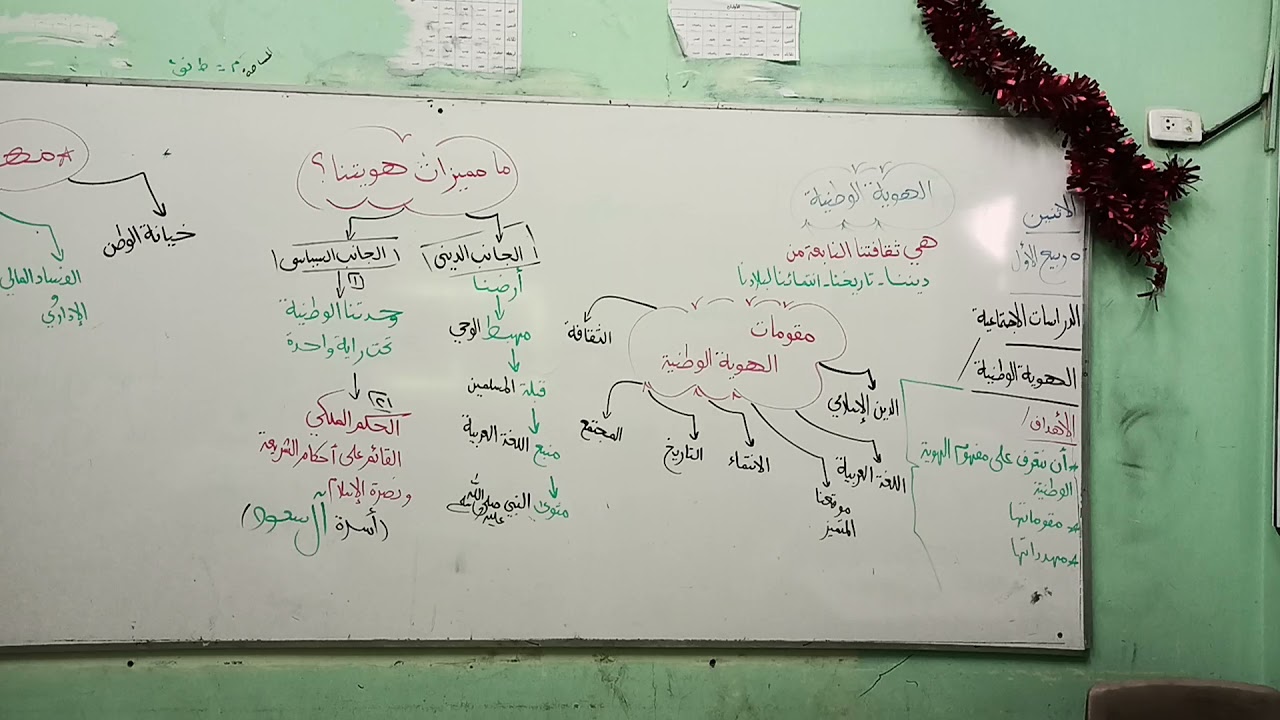 الاثنين
٥ ربيع الأول
الدراسات الاجتماعية
الهوية الوطنية
الأهداف/
* أن نتعرف على مفهوم الهوية
الوطنية
* مقوماتها
* مهدداتها
الهوية الوطنية
هي ثقافتنا النابعة من
ديننا - تاريخنا - انتمائنا لبلادنا
مقومات
الهوية الوطنية
الدين الإسلامي
اللغة العربية
موقعنا
المتميز
الانتماء
التاريخ
المجتمع
الثقافة
ما مميزات هويتنا؟
الجانب الديني
أرضنا
مهبط الوحي
قبلة المسلمين
منبع اللغة العربية
مثوى النبي صلى الله عليه وسلم
الجانب السياسي
١
وحدتنا الوطنية
تحت راية واحدة
٢
الحكم الملكي
القائم على أحكام الشريعة
ونصرة الإسلام
(أسرة آل سعود)
خيانة الوطن
الفساد المالي
الإداري